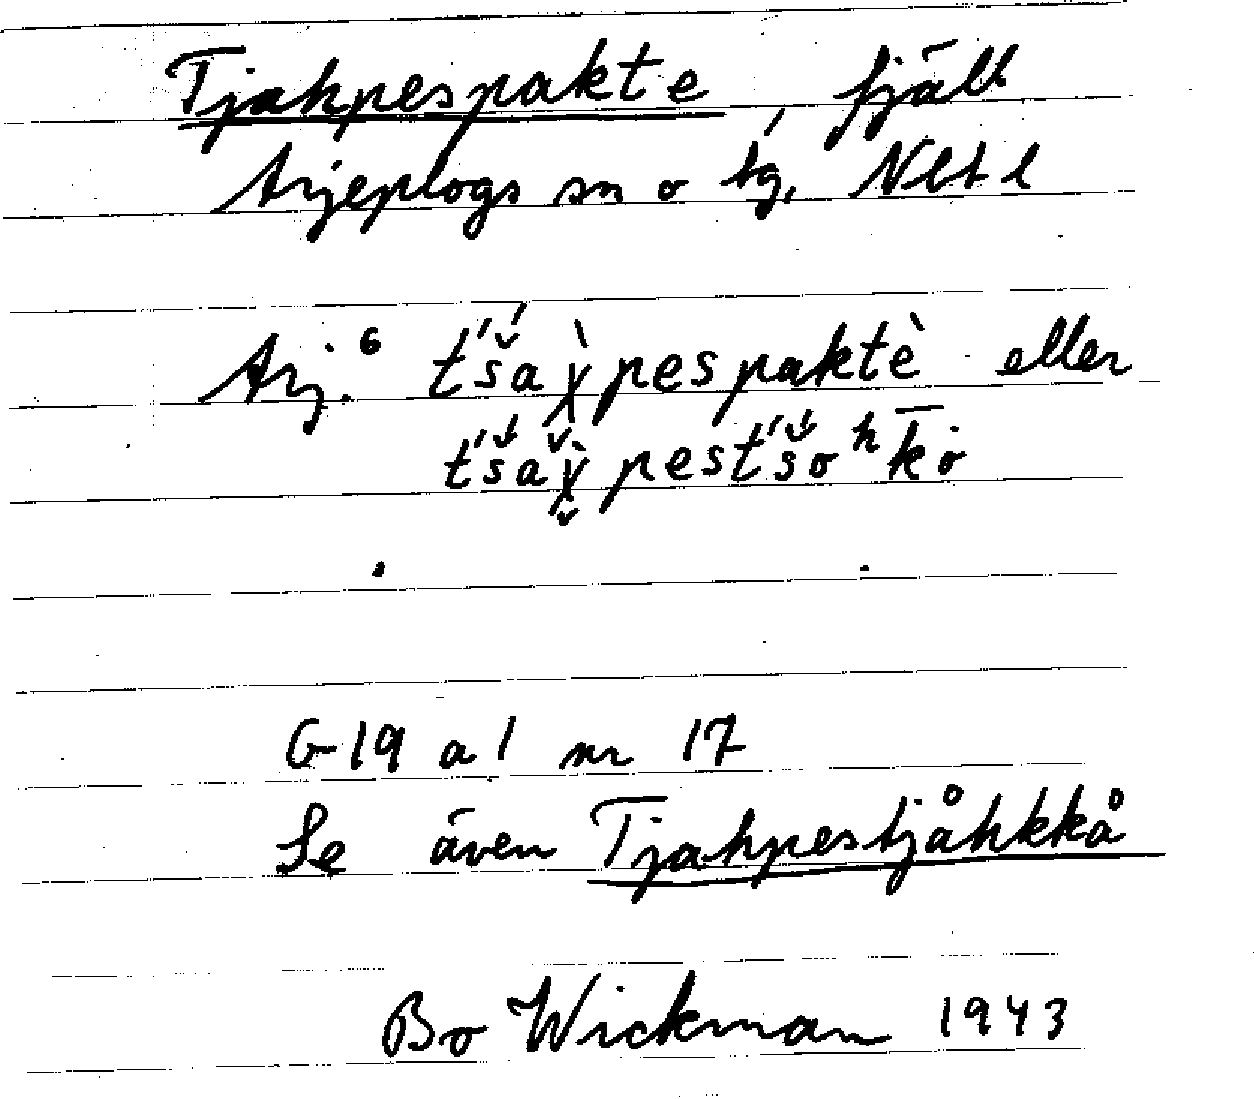 Tjahpespakte, fjäll
Arjeplogs sn o tg, Nbtl
Arj.⁶ t́š́aχ̀pespaktè eller
t́šaχ̌pest́šoʰk̄ȯ
G19 a 1 nr 17
Se även Tjahpestjåhkkå
Bo Wickman 1943